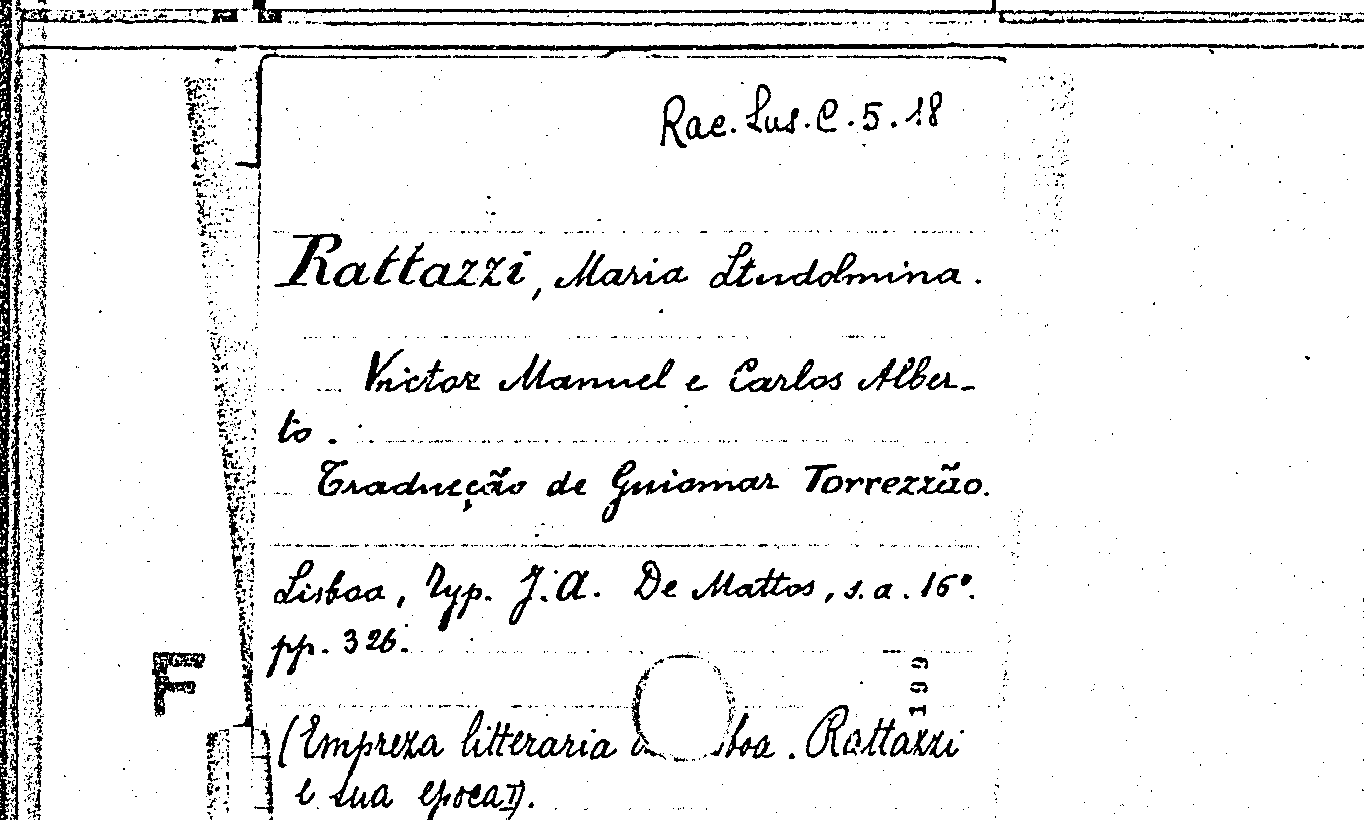 Rac. Lus. C. 5. 18
Rattazzi, Maria Studolmina.
Victor Manuel e Carlos Alber-
to.
Traducção de Guiomar Torrezão.
Lisboa, Typ. J. A. De Mattos, s. a. 16°.
pp. 326.
F
199
(Empreza litteraria boa. Rattazzi
e sua epoca I).